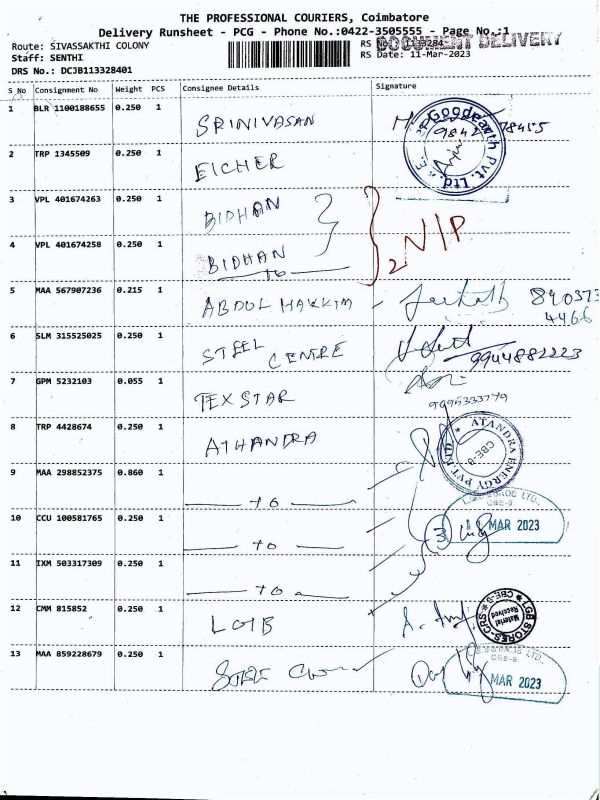 THE PROFESSIONAL COURIERS, Coimbatore
Delivery Runsheet - PCG - Phone No.:0422-3505555 - Page No.:1
Route: SIVASSAKTHI COLONY
RS No.: 113284 DOCUMENT DELIVERY
Staff: SENTHI
RS Date: 11-Mar-2023
DRS No.: DCJB113328401
S No Consignment No Weight PCS Consignee Details Signature
1 BLR 1100188655 0.250 1 SRINIVASAN
Goodearth Pvt. Ltd.
2 TRP 1345509 0.250 1 EICHER
3 VPL 401674263 0.250 1 BIDHAN
2 N/P
4 VPL 401674258 0.250 1 BIDHAN
to
5 MAA 567907236 0.215 1 ABDUL HAKKIM
4466
6 SLM 315525025 0.250 1 STEEL CENTRE 9944882223
7 GPM 5232103 0.055 1 TEXSTAR
9995333779
8 TRP 4428674 0.250 1 ATHANDRA
ATANDRA ENERGY PVT. LTD CBE-6
9 MAA 298852375 0.860 1 to
CBE-6.
10 CCU 100581765 0.250 1 to 3
MAR 2023
11 IXM 503317309 0.250 1 to
12 CMM 815852 0.250 1 LGB
LGB STORES-CRS CBE-6 Material Received
13 MAA 859228679 0.250 1
CBE-6
MAR 2023